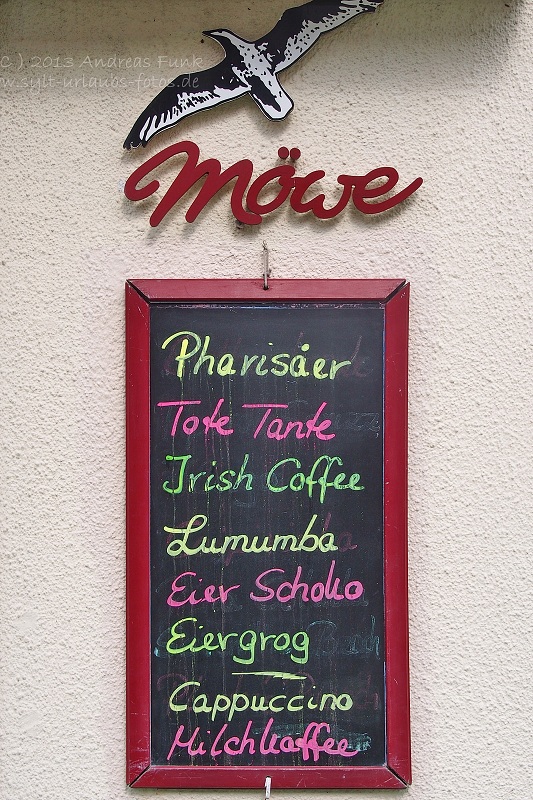 (C ) 2013 Andreas Funk
www.sylt-urlaubs-fotos.de
Möwe
Pharisäer
Tote Tante
Irish Coffee
Lumumba
Eier Schoko
Eiergrog
Cappuccino
Milchkaffee